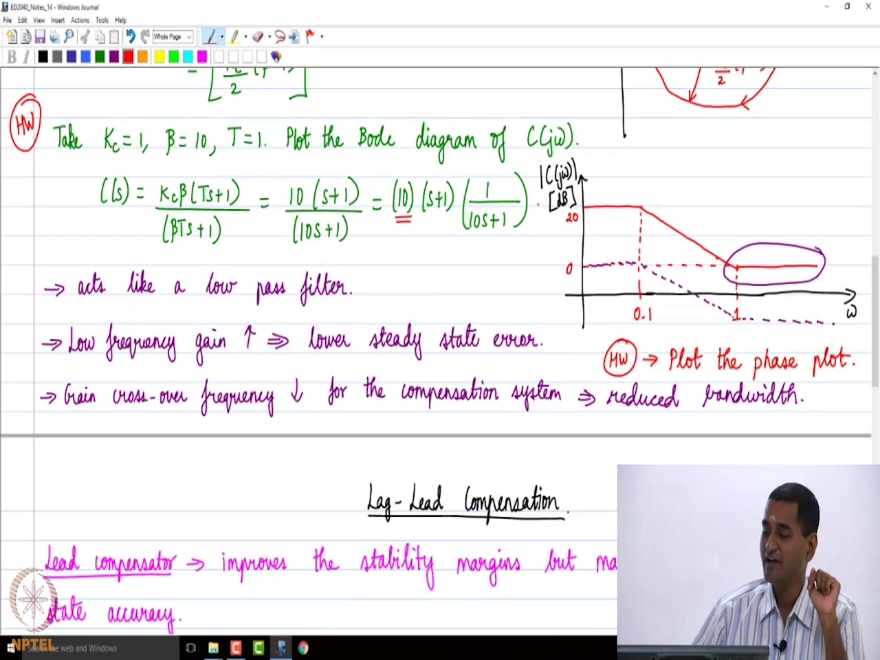 ED2040_Notes_14 - Windows Journal
File Edit View Insert Actions Tools Help
Whole Page
B I
2
2
HW
Take Kc = 1, β = 10, T = 1. Plot the Bode diagram of C(jω).
C(s) = Kcβ(Ts+1) / (βTs+1) = 10(s+1) / (10s+1) = (10) (s+1) (1 / 10s+1).
|C(jω)|
[dB]
20
0
0.1
1
ω
→ acts like a low pass filter.
→ Low frequency gain ↑ ⇒ lower steady state error.
HW → Plot the phase plot.
→ Gain cross-over frequency ↓ for the compensation system ⇒ reduced bandwidth.
Lag-Lead Compensation.
Lead compensator → improves the stability margins but ma
state accuracy.
NPTEL
the web and Windows